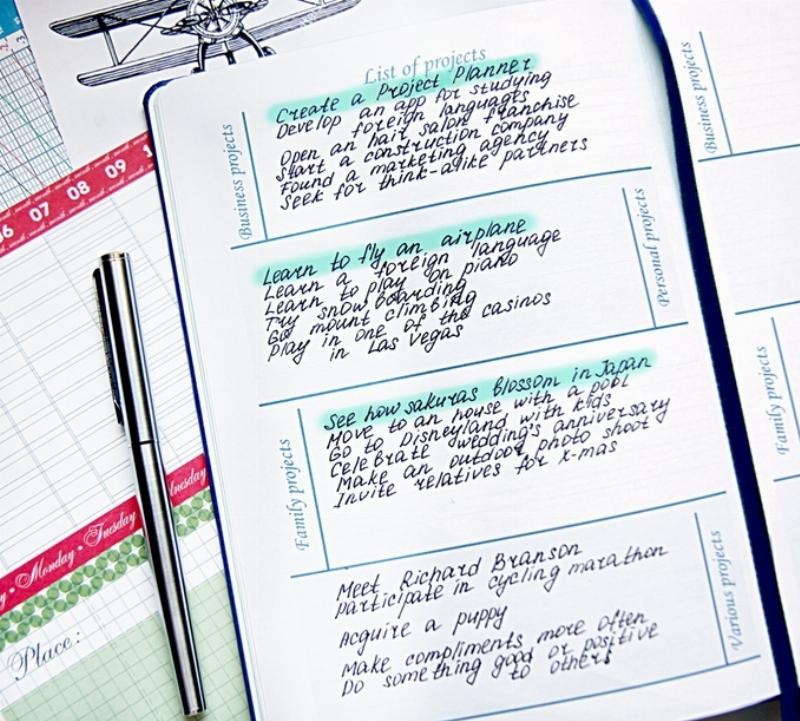 List of projects
Business projects
Create a Project Planner
Develop an app for studying
foreign languages
Open an hair salon franchise
Start a construction company
Found a marketing agency
Seek for think-alike partners
Personal projects
Learn to fly an airplane
Learn a foreign language
Learn to play on piano
Try snowboarding
Go mount climbing
Play in one of the casinos
in Las Vegas
Family projects
See how sakuras blossom in Japan
Move to an house with a pool
Go to Disneyland with kids
Celebrate wedding's anniversary
Make an outdoor photo shoot
Invite relatives for x-mas
Various projects
Meet Richard Branson
participate in cycling marathon
Acquire a puppy
Make compliments more often
Do something good or positive
to others
Business projects
Family projects
07 08 09
Monday • Tuesday
Place: